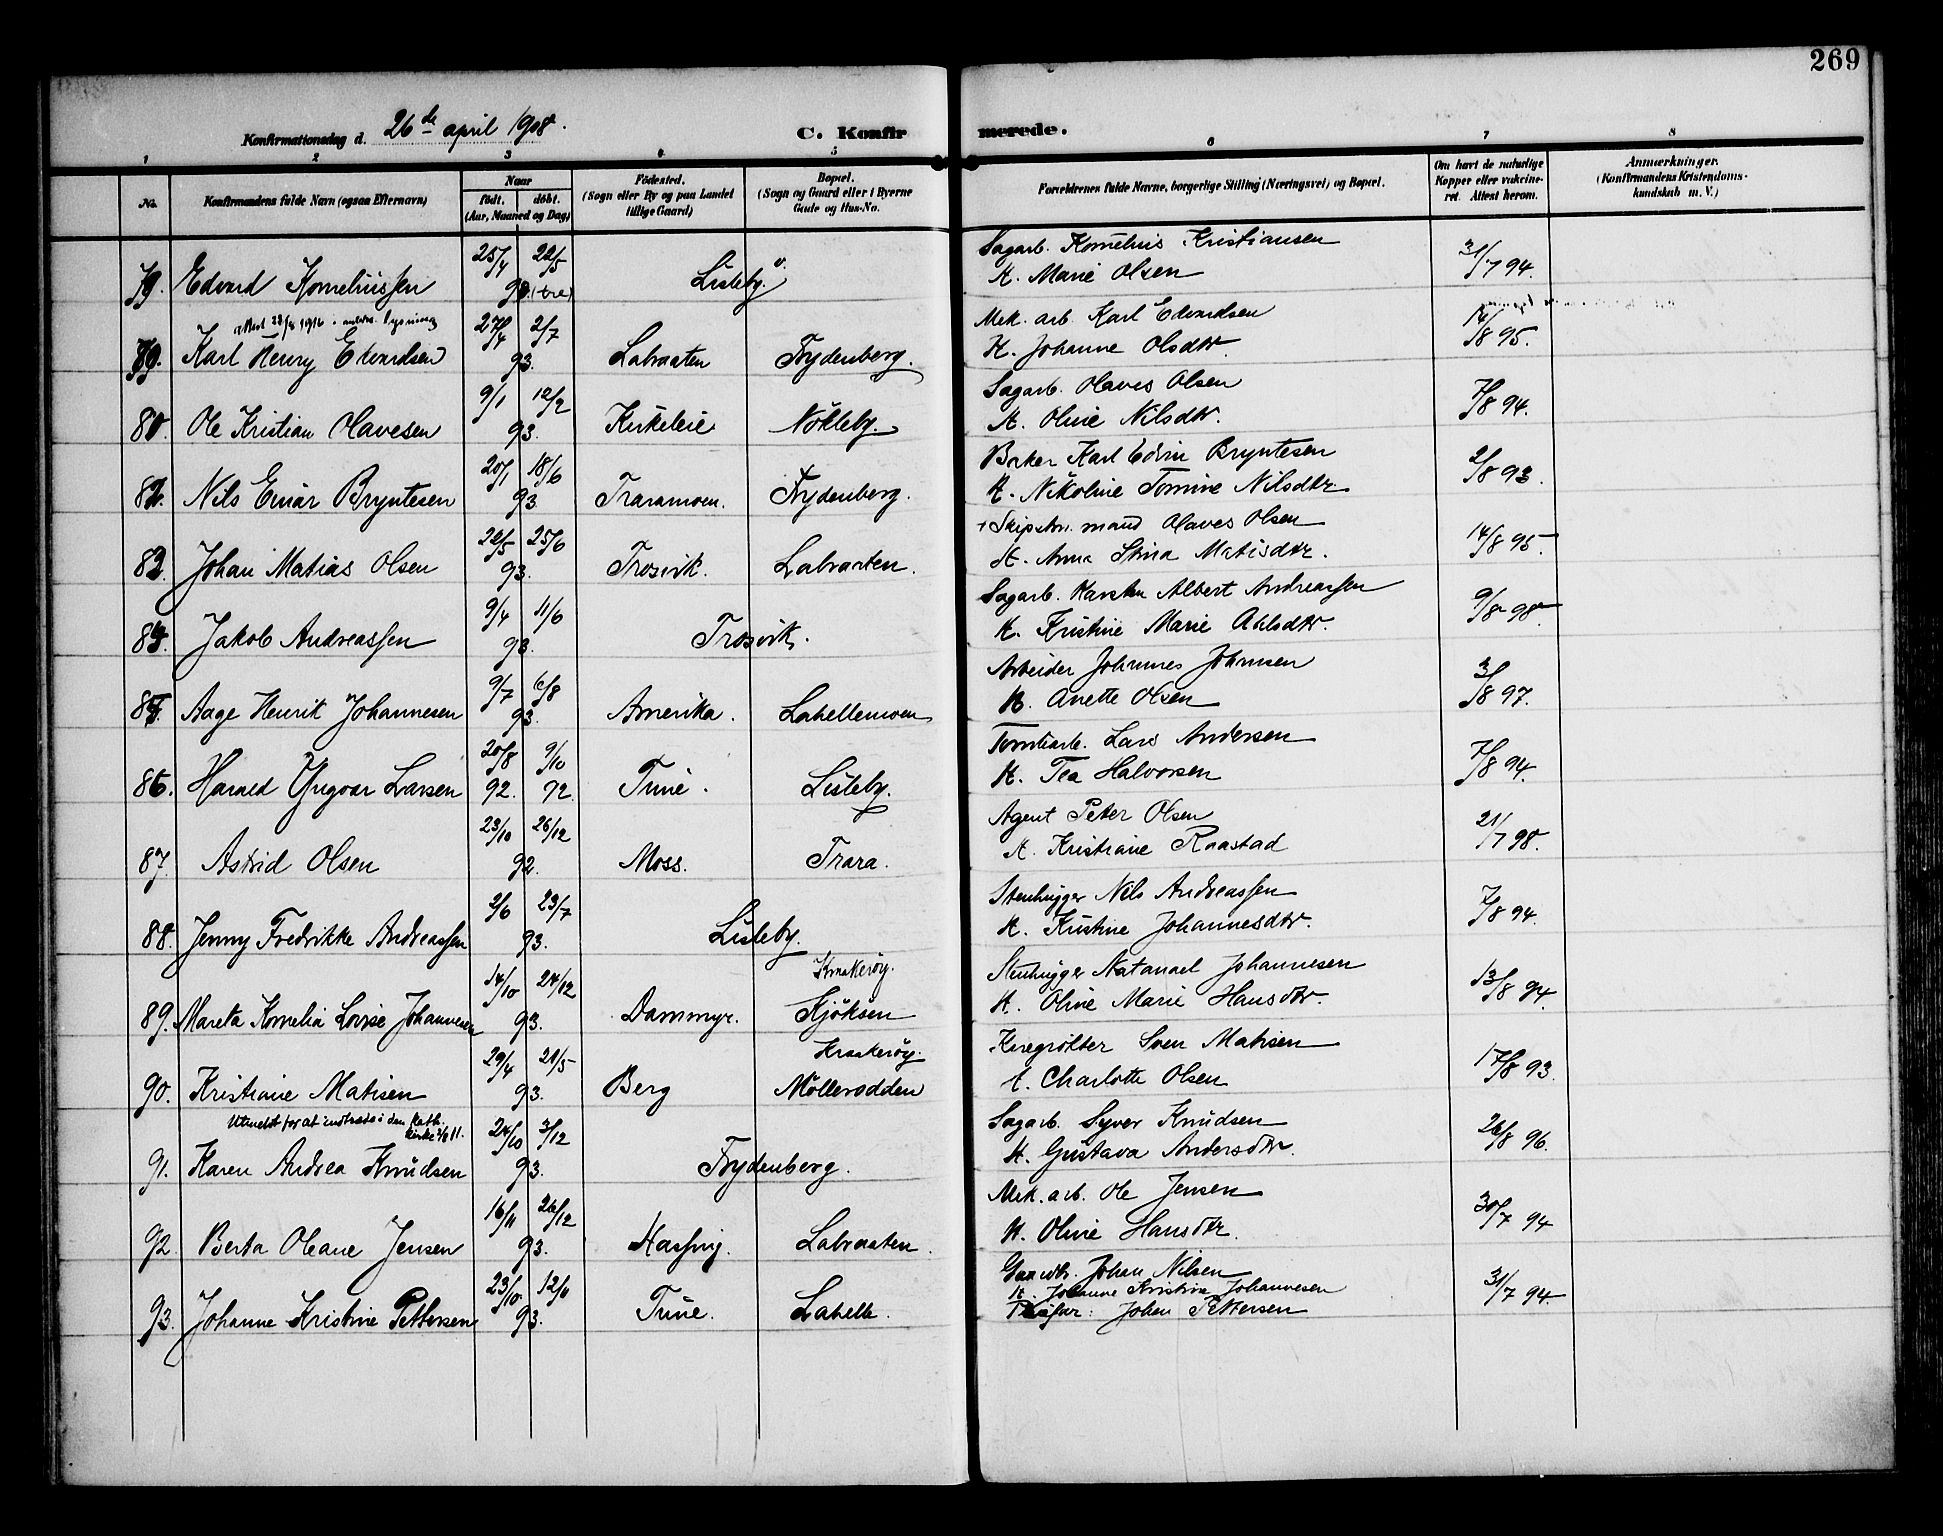 269
Konfirmationsdag d. 26de april 1908.
C. Konfirmerede.
1 2 3 4 5 6 7 8
No.
Konfirmandens fulde Navn (ogsaa Efternavn)
Naar
født. døbt.
(Aar, Maaned og Dag)
Fødested.
(Sogn eller By og paa Landet
tillige Gaard)
Bopæl.
(Sogn og Gaard eller i Byerne
Gade og Hus-No.
Forældrenes fulde Navne, borgerlige Stilling (Næringsvei) og Bopæl.
Om havt de naturlige
Kopper eller vakcine-
ret. Attest herom.
Anmærkninger.
(Konfirmandens Kristendoms-
kundskab m. V.)
25/4 22/5 Sagarb. Kornelius Kristiansen 31/7 94.
Edvard Korneliussen Lisleby. K. Marie Olsen
27/4 2/7 Mek. arb. Karl Edvardsen 14/8 95.
Karl Henry Edvardsen 93. Labraaten Frydenberg. K. Johanne Olsdtr.
9/1 12/2 Sagarb. Olaves Olsen 7/8 94.
Ole Kristian Olavesen 93. Kirkeleie Nökleby. K. Oline Nilsdtr.
20/1 18/6 Baker Karl Edvin Bryntesen 2/8 93.
82. Nils Einar Bryntesen 93 Traramoen. Frydenberg. K. Nikoline Tomine Nilsdtr.
22/5 25/6 mand Olaves Olsen 14/8 95.
83. Johan Matias Olsen 93. Trosvik. Labraaten. K. Anna Stina Matisdtr.
9/4 11/6 Sagarb. Karsten Albert Andreassen 9/8 98
84. Jakob Andreassen 93. Trosvik. K. Kristine Marie
9/7 6/8 Arbeider Johannes Johansen 3/8 97.
85. Aage Henrik Johannesen 93. Amerika. Labellemoen K. Anette Olsen
20/8 9/10 Tomtearb. Lars Andersen 7/8 94.
86. Harald Yngvar Larsen 92. 92. Tune. Lisleby. K. Tea Halvorsen
23/10 26/12 Agent Peter Olsen 21/7 98.
87. Astrid Olsen 92. Moss. Trara. K. Kristiane Raastad
2/6 23/7 Stenhugger Nils Andreassen 7/8 94.
88. Jenny Fredrikke Andreassen 93. Lisleby. K. Kristine Johannesdtr.
14/10 24/12 Kraakerøy. Stenhugger Natanael Johannesen 13/8 94.
89. Mareta Kornelia Lovise Johannesen 93. Dammyr. Kjöksen K. Oline Marie Hansdtr.
29/4 21/5 Kraakerøy. Sven Matisen 17/8 93.
90. Kristiane Matisen 93. Berg Möllerodden Charlotte Olsen
Utmeldt for at indtræde i den kath. kirke 11.
24/10 3/12 Sagarb. Syver Knudsen 26/8 96.
91. Karen Andrea Knudsen 93. Frydenberg. K. Gustava Andersdtr.
16/11 26/12 Mek. arb. Ole Jensen 30/7 94
92. Berta Oleane Jensen 93. Labraaten. K. Oline Hansdtr.
23/10 12/6 Johan Nilsen 31/7 94.
K. Johanne Kristine Johannesen
93. Johanne Kristine Pettersen 93. Tune. Labelle. Pleiefar: Johan Pettersen